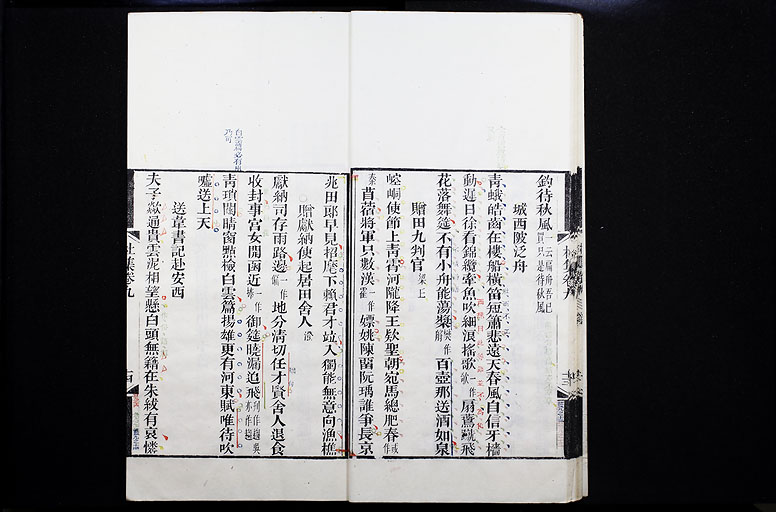 釣待秋風一云扁舟吾已買只是待秋風
城西陂泛舟
青蛾皓齒在樓船橫笛短簫悲遠天春風自信牙檣
動遲日徐看錦纜牽魚吹細浪搖歌一作扇鷰蹴飛
花落舞筵不有小舟能蕩槳百壺那送酒如泉
贈田九判官梁丘
崆峒使節上青霄河隴降王欵聖朝宛馬總肥春
秦苜蓿將軍只數漢一作霍嫖姚陳留阮瑀誰爭長京
兆田郎早見招麾下賴君才竝入獨能無意向漁樵
贈獻納使起居田舍人澄
獻納司存雨露邊一作偏地分清切任才賢舍人退食
收封事宮女開函近一作捧御筵曉漏追飛
青瑣闥晴窗點檢白雲篇揚雄更有河東賦唯待吹
噓送上天
送韋書記赴安西
夫子歘通貴雲泥相望懸白頭無籍在朱紱有哀憐
杜集卷九